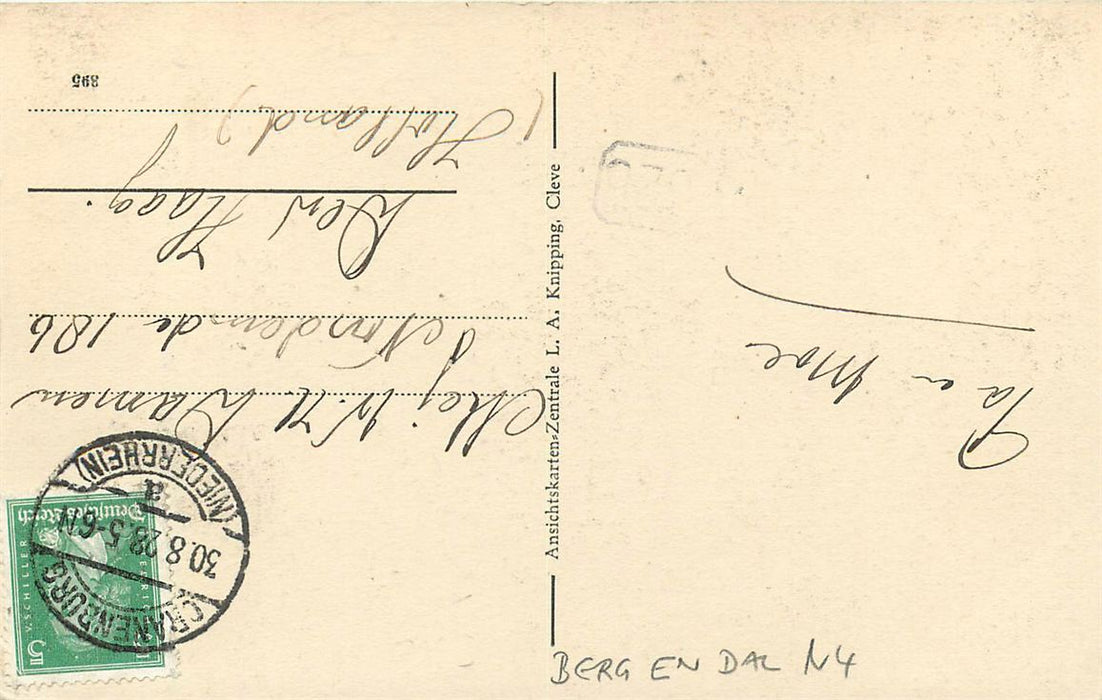 Pa en Moe
Ansichtskarten-Zentrale L. A. Knipping, Cleve
Deutsches Reich
5
V. SCHILLER
CRANENBURG
30.8.28.5-6N
a
(NIEDERRHEIN)
Mej W. H. Damen
186
Den Haag.
(Holland)
895
BERG EN DAL N4